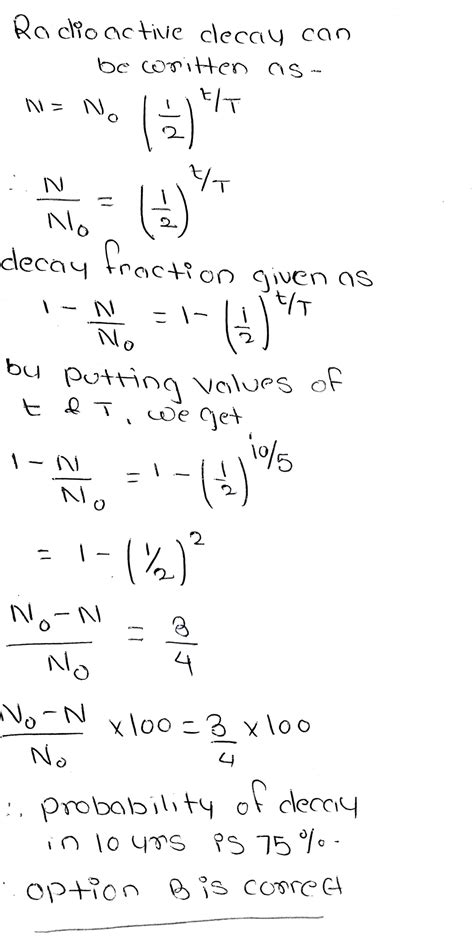 Radioactive decay can
be written as -
N = N₀ (1/2)^t/T
∴ N/N₀ = (1/2)^t/T
decay fraction given as
1 - N/N₀ = 1 - (1/2)^t/T
by putting values of
t & T, we get
1 - N/N₀ = 1 - (1/2)^10/5
= 1 - (1/2)^2
N₀-N/N₀ = 3/4
N₀-N/N₀ × 100 = 3/4 × 100
∴ probability of decay
in 10 yrs is 75%.
∴ option B is correct